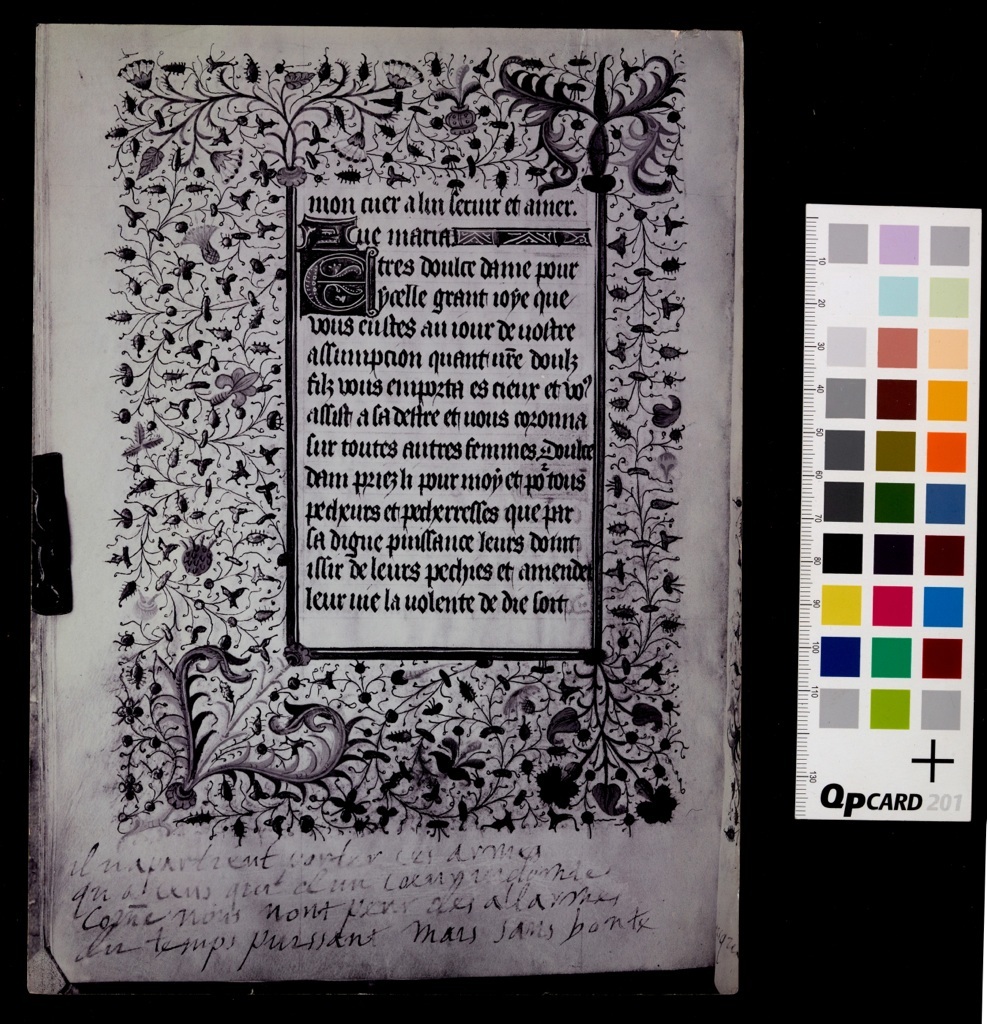 mon cuer a lui seruir et amer.
Aue maria
E tres doulce dame pour
ycelle grant ioye que
vous eustes au iour de uostre
assumption quant ur̄e doulz
filz vous emporta es cieux et vo⁹
assist a sa destre et uous coronna
sur toutes autres femmes Doulce
dam priez li pour moy et po᷑ tous
pecheurs et pecherresses que par
sa digne puissance leurs doint
issir de leurs pechies et amender
leur uie la uolente de die soit
il napartient porter ces armes
qu a ceus quit dun
Come nous nont peur des allarmes
en temps puissant mais sans honte
10
20
30
40
50
60
70
80
90
100
110
130
QPCARD 201